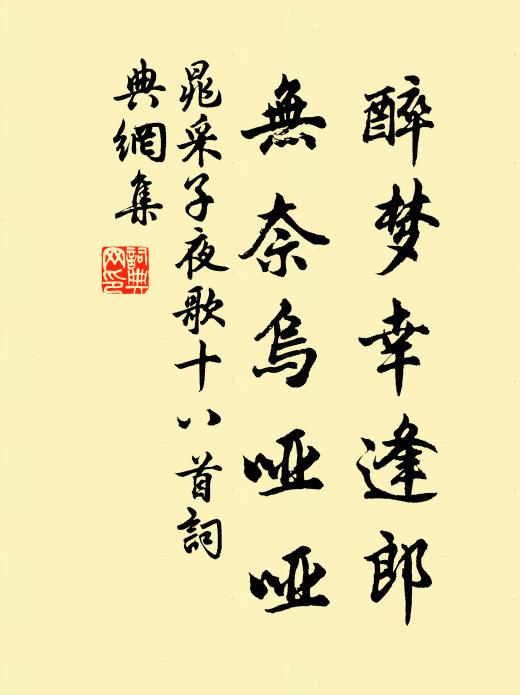 醉梦幸逢郎
無奈烏哑哑
晁采子夜歌十八首詞
典網集
詞典
网印